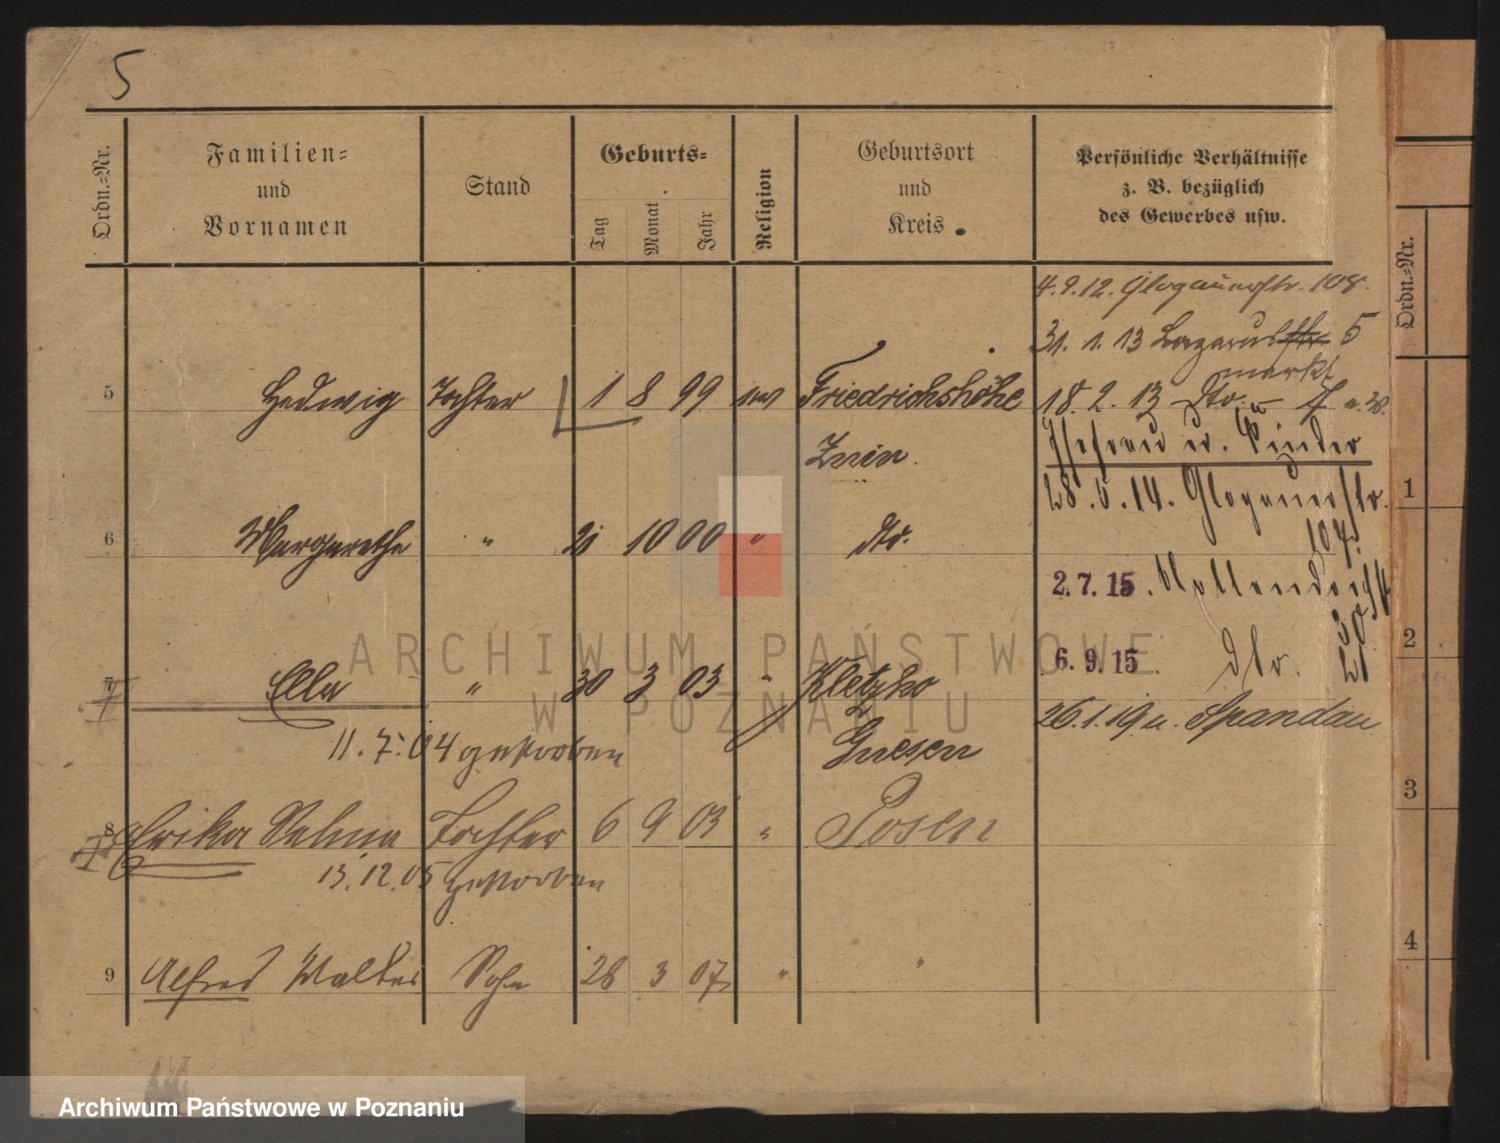 5
Ordn.=Nr.
Familien= und Vornamen
Stand
Geburts=
Tag Monat Jahr
Religion
Geburtsort und Kreis
Persönliche Verhältnisse z. B. bezüglich des Gewerbes usw.
4.9.12. Glogauerstr. 108.
31. 1. 13 Lazarusstr. 5
markt
5 Hedwig Tochter 1 8 99 Friedrichshöhe
18. 2. 13 dto.
Znin.
Ehefrau u. Kinder
28.5.14. Glogauerstr.
104.
6 Margarethe " 21 10 00 " dto.
2.7.15.
6.9.15. dto.
7 Ella " 30 3 03 " Kletzko
Gnesen
26.1.19 n. Spandau
11.7.04 gestorben
8 Erika Selma Tochter 6 9 03 " Posen
13.12.05 gestorben
9 Alfred Walter Sohn 28 3 07 " "
Ordn.=Nr.
1
2
3
4
ARCHIWUM PAŃSTWOWE
W POZNANIU
Archiwum Państwowe w Poznaniu